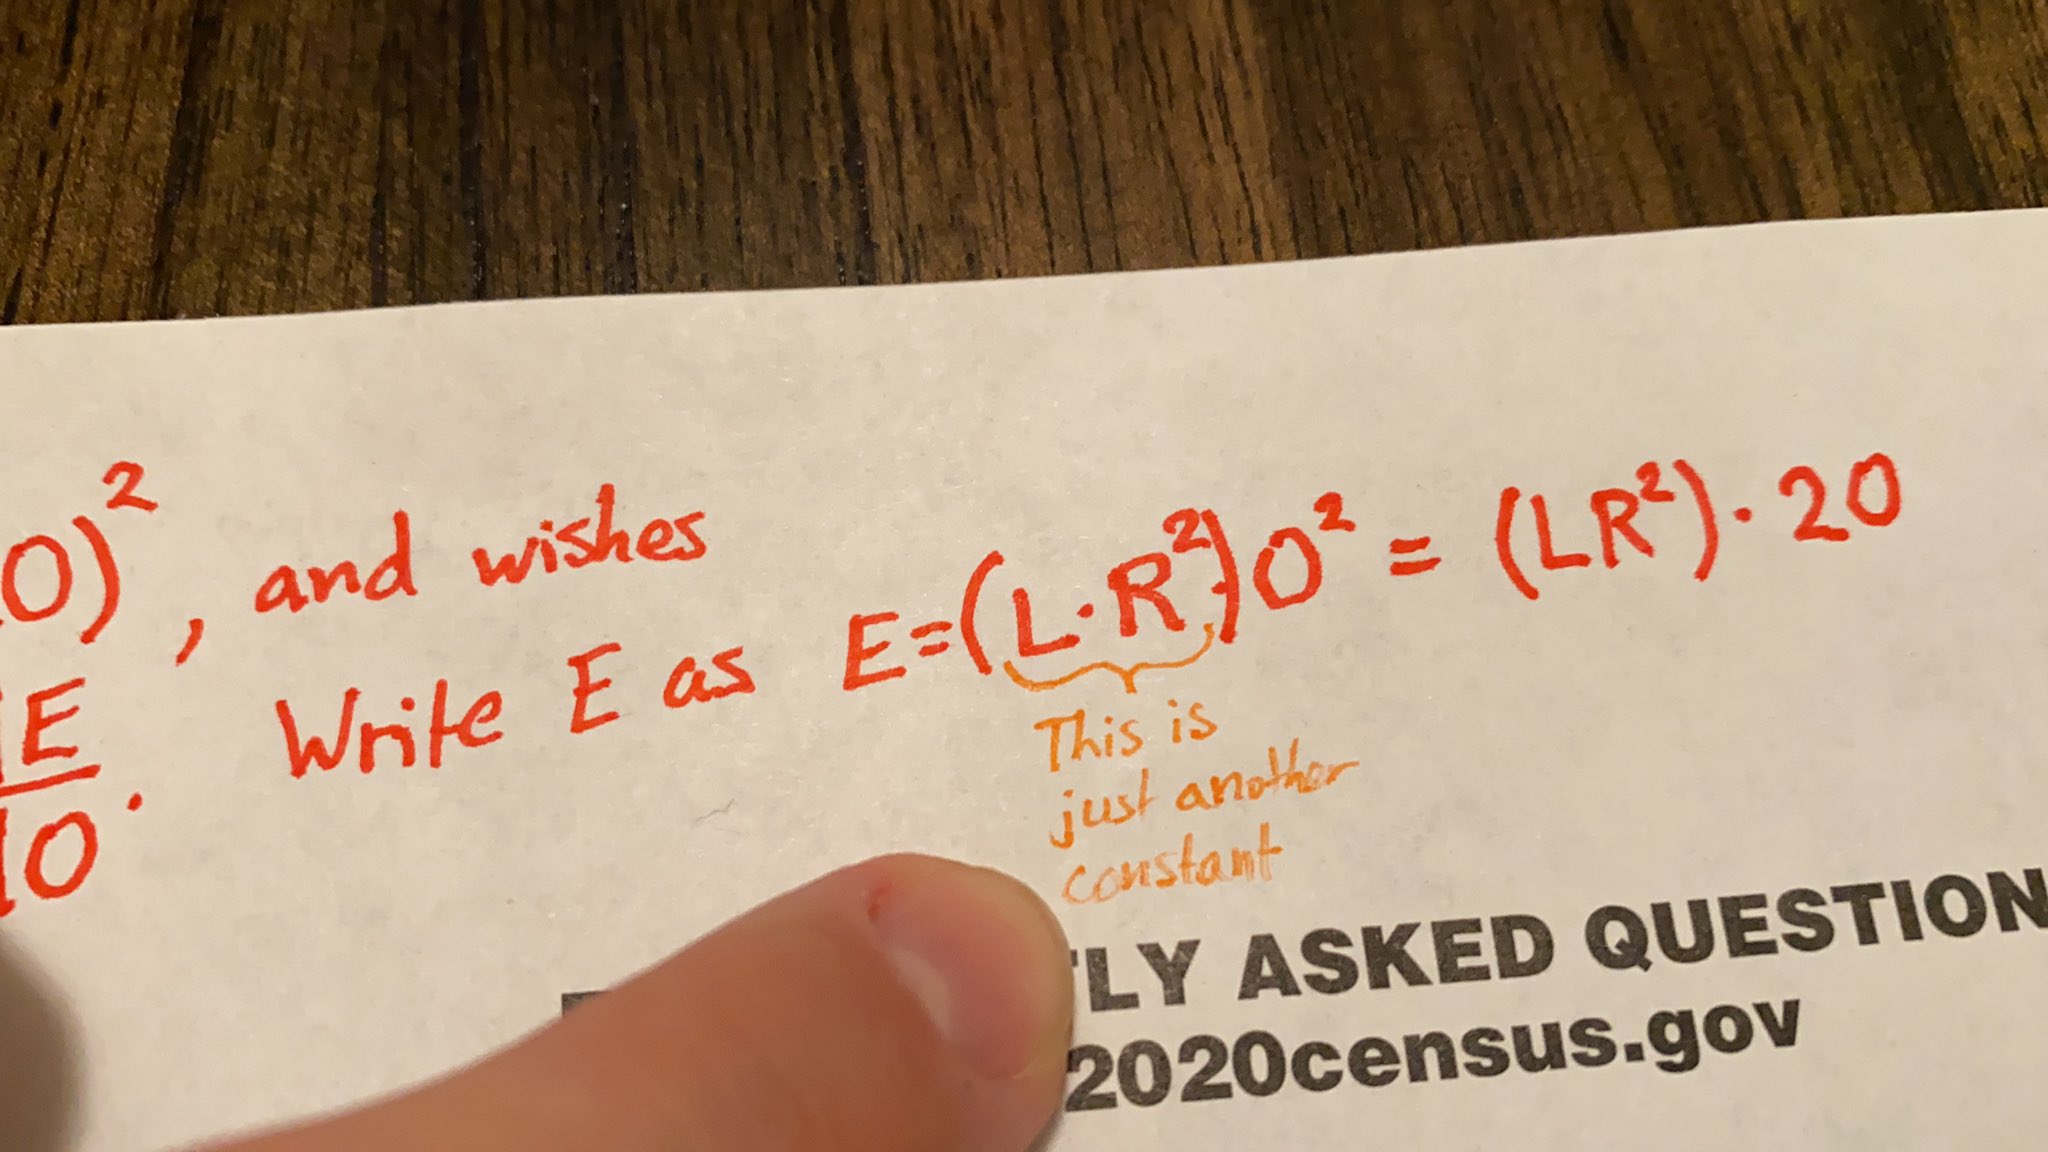 O)², and wishes
E/O. Write E as E=(L·R²)O² = (LR²)·20
This is
just another
constant
LY ASKED QUESTION
2020census.gov